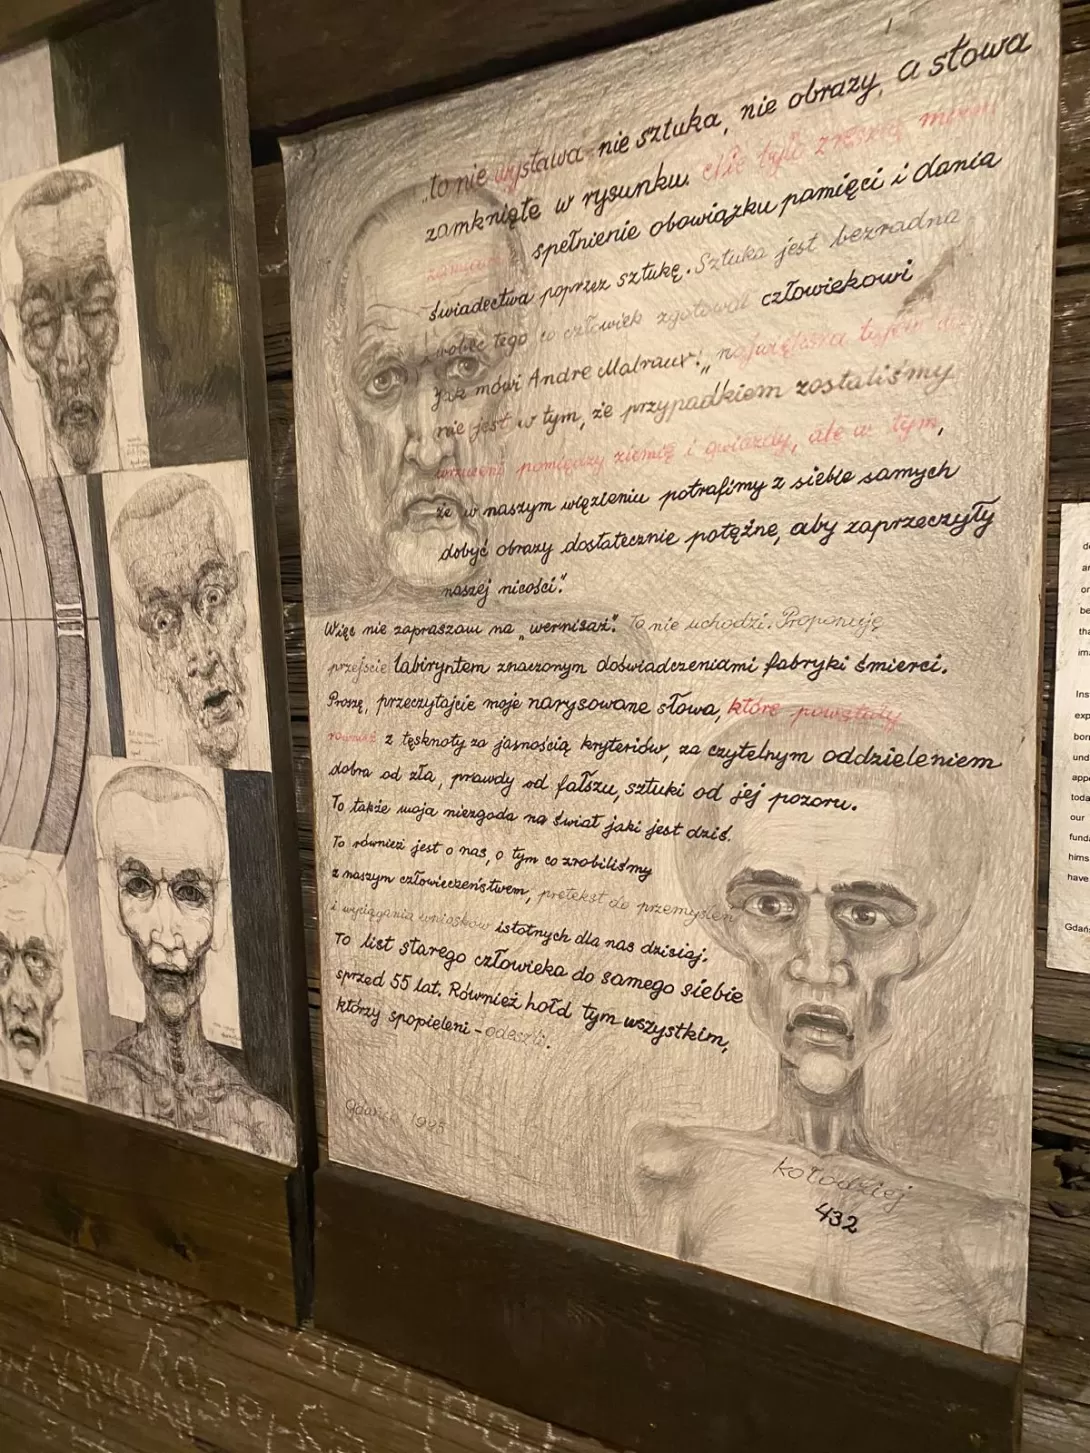 „to nie wystawa - nie sztuka, nie obrazy, a słowa
zamknięte w rysunku. Nie było zresztą moim
zamiarem spełnienie obowiązku pamięci i dania
świadectwa poprzez sztukę. Sztuka jest bezradna
wobec tego co człowiek zgotował człowiekowi
Jak mówi Andre Malraux: „największa tajemnica
nie jest w tym, że przypadkiem zostaliśmy
wrzuceni pomiędzy ziemię i gwiazdy, ale w tym,
że w naszym więzieniu potrafimy z siebie samych
dobyć obrazy dostatecznie potężne, aby zaprzeczyły
naszej nicości”.
Więc nie zapraszam na „wernisaż”. To nie uchodzi. Proponuję
przejście labiryntem znaczonym doświadczeniami fabryki śmierci.
Proszę, przeczytajcie moje narysowane słowa, które powstały
również z tęsknoty za jasnością kryteriów, za czytelnym oddzieleniem
dobra od zła, prawdy od fałszu, sztuki od jej pozoru.
To także moja niezgoda na świat jaki jest dziś.
To również jest o nas, o tym co zrobiliśmy
z naszym człowieczeństwem, pretekst do przemyśleń
i wyciągania wniosków istotnych dla nas dzisiaj.
To list starego człowieka do samego siebie
sprzed 55 lat. Również hołd tym wszystkim,
którzy spopieleni - odeszli.
Gdańsk
kołodziej
432
Gdań